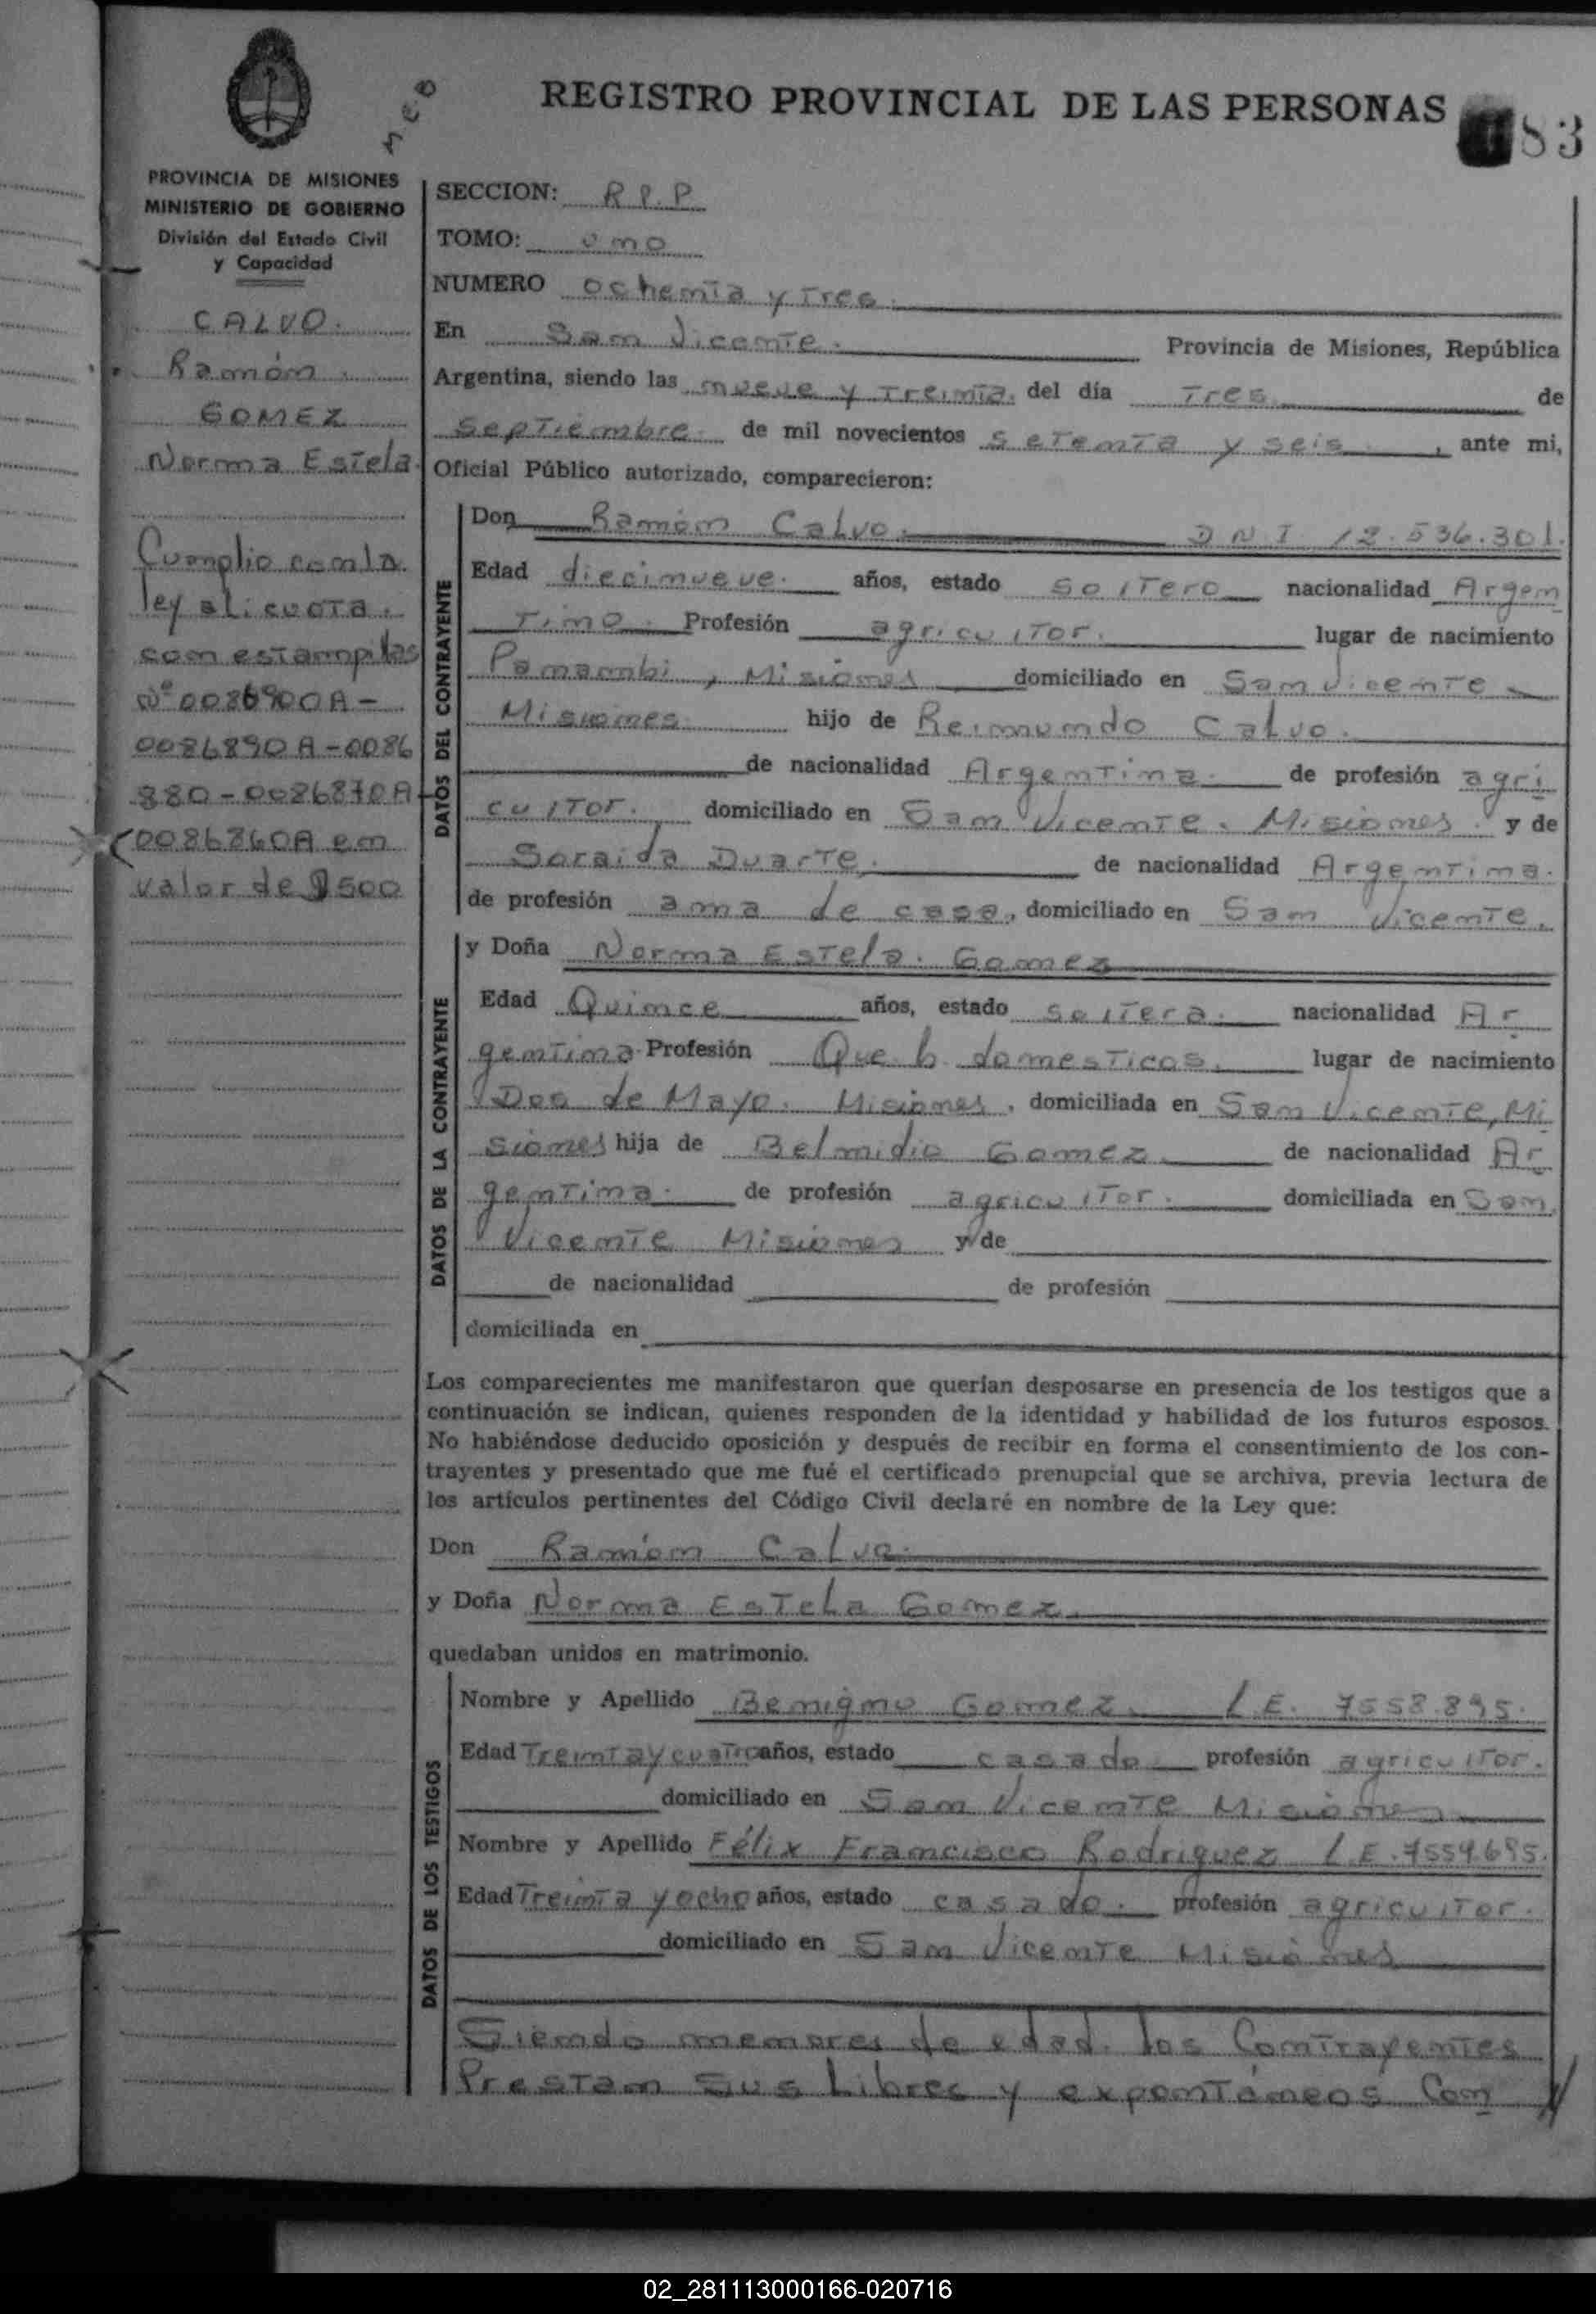 REGISTRO PROVINCIAL DE LAS PERSONAS
83
PROVINCIA DE MISIONES
MINISTERIO DE GOBIERNO
División del Estado Civil
y Capacidad
CALVO.
Ramón
GOMEZ
Norma Estela.
Cumplio con la
ley alicuota.
con estampillas
Nº 0086900A-
0086890A-0086
880-0086870A-
0086860A en
valor de $500
SECCION: R P. P
TOMO: uno
NUMERO ochenta y tres.
En San Vicente. Provincia de Misiones, República
Argentina, siendo las nueve y treinta. del día tres de
septiembre. de mil novecientos setenta y seis , ante mi,
Oficial Público autorizado, comparecieron:
DATOS DEL CONTRAYENTE
Don Ramón Calvo. D N I 12.536.301.
Edad diecinueve. años, estado soltero nacionalidad Argen
tino. Profesión agricultor. lugar de nacimiento
Panambi, Misiones domiciliado en San Vicente
Misiones hijo de Reimundo Calvo.
de nacionalidad Argentina. de profesión agri
cultor. domiciliado en San Vicente. Misiones. y de
Soraida Duarte. de nacionalidad Argentina.
de profesión ama de casa, domiciliado en San Vicente.
DATOS DE LA CONTRAYENTE
y Doña Norma Estela. Gomez
Edad Quince años, estado soltera. nacionalidad Ar
gentina Profesión Que h. domesticos. lugar de nacimiento
Dos de Mayo. Misiones, domiciliada en San Vicente, Mi
siones hija de Belmidio Gomez de nacionalidad Ar
gentina. de profesión agricultor. domiciliada en San
Vicente Misiones y de
de nacionalidad de profesión
domiciliada en
Los comparecientes me manifestaron que querían desposarse en presencia de los testigos que a
continuación se indican, quienes responden de la identidad y habilidad de los futuros esposos.
No habiéndose deducido oposición y después de recibir en forma el consentimiento de los con-
trayentes y presentado que me fué el certificado prenupcial que se archiva, previa lectura de
los artículos pertinentes del Código Civil declaré en nombre de la Ley que:
Don Ramón Calvo.
y Doña Norma Estela Gomez.
quedaban unidos en matrimonio.
DATOS DE LOS TESTIGOS
Nombre y Apellido Benigno Gomez. L.E. 7558.895.
Edad Treinta y cuatro años, estado casado profesión agricultor.
domiciliado en San Vicente Misiones
Nombre y Apellido Félix Francisco Rodriguez L.E. 7559.695.
Edad Treinta y ocho años, estado casado. profesión agricultor.
domiciliado en San Vicente Misiones
Siendo menores de edad. los Contrayentes
Prestan sus Libres y expontáneos Con
02_281113000166-020716